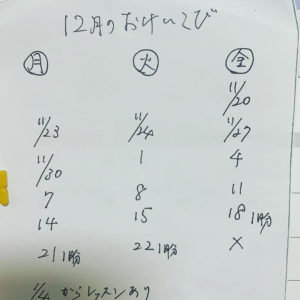 12月のおけいこび
月 火 金
11/20
11/23 11/24 11/27
11/30 1 4
7 8 11
14 15 18 1月分
21 1月分 22 1月分 ×
1/4 からレッスンあり